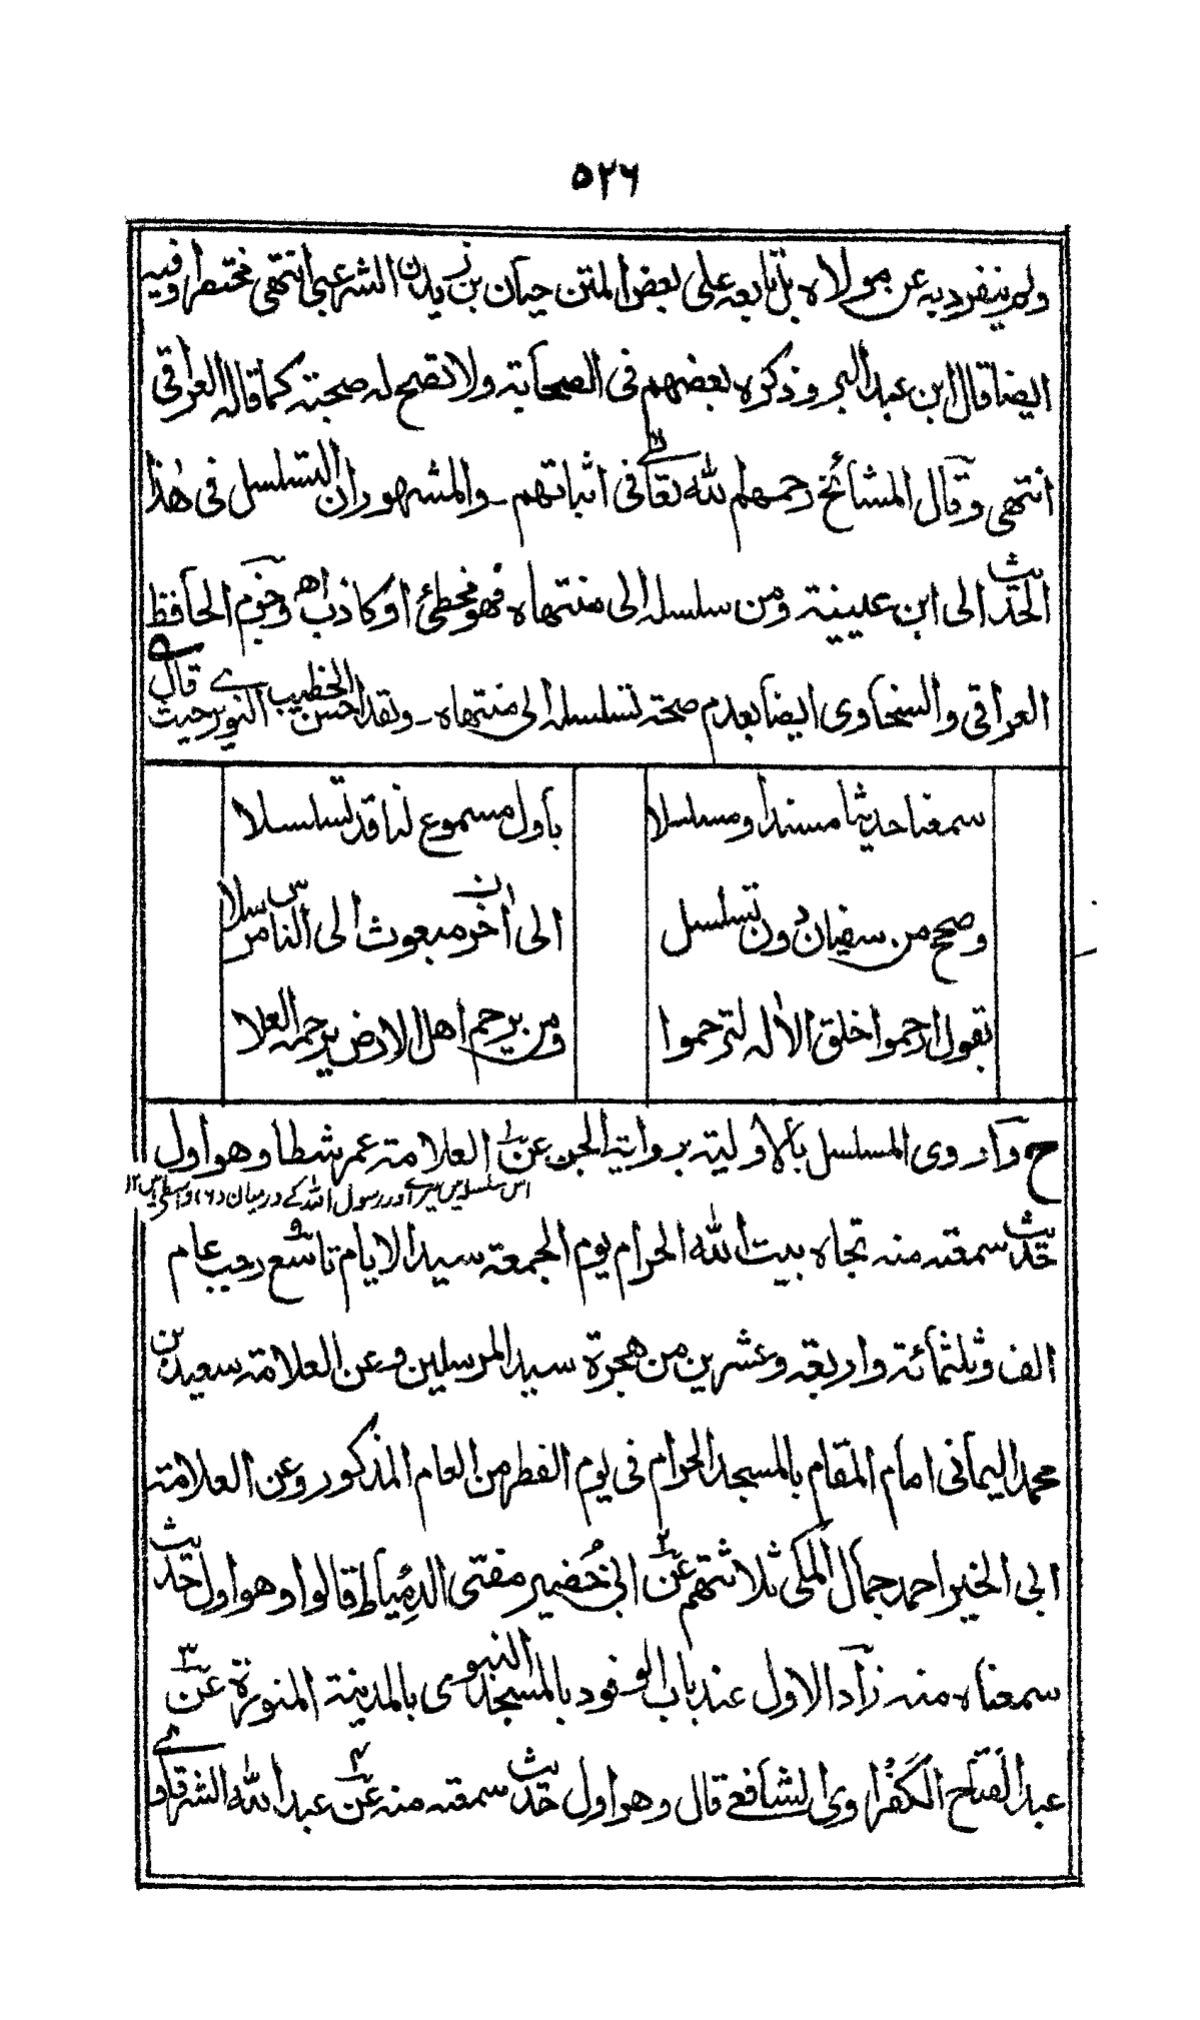 ٥٢٦
ولم ينفرد به عن مولاه بل تابعه على بعض المتن حبان بن زيد ن الشرعبي انتهى مختصرا وفيه
ايضا قال ابن عبد البر وذكره بعضهم فى الصحابة ولا تصح له صحبته كما قاله العراقى
انتهى وقال المشائخ رحمهم الله تعالى فى اثباتهم ـ والمشهور ان التسلسل فى هذا
الحديث الى ابن عيينة ومن سلسله الى منتهاه فهو مخطئ او كاذب اھ وجزم الحافظ
العراقى والسخاوى ايضا بعدم صحة تسلسله الى منتهاه ـ ولقد احسن الخطيب النويرى حيث قال
سمعنا حديثا مسندا ومسلسلا بأول مسموع لنا قد تسلسلا
وصح من سفيان دون تسلسل الى اخر مبعوث الى الناس
يقول ارحموا خلق الاله لترحموا ومن يرحم اهل الارض يرحمه العلا
ح وأروى المسلسل بالأولية برواية الجن عن العلامة عمر شطا وهو اول
اس سلسلہ میں میرے اور رسول اللہ کے درمیان (۶) واسطے ہیں ۱۲
حديث سمعته منه تجاه بيت الله الحرام يوم الجمعة سيد الايام تاسع رجب عام
الف وثلثمائة واربعة وعشرين من هجرة سيد المرسلين وعن العلامة سعيد بن
محمد اليمانى امام المقام بالمسجد الحرام فى يوم الفطر من العام المذكور وعن العلامة
ابى الخير احمد جمال المكى ثلاثتهم عن ٢ ابى خُضير مفتى الدمياط قالوا وهو اول حديث
سمعناه منه زاد الاول عند باب الوفود بالمسجد النبوى بالمدينة المنورة عن ٣
عبد الفتاح الكفراوى الشافعى قال وهو اول حديث سمعته منه عن ٤ عبد الله الشرقاوى